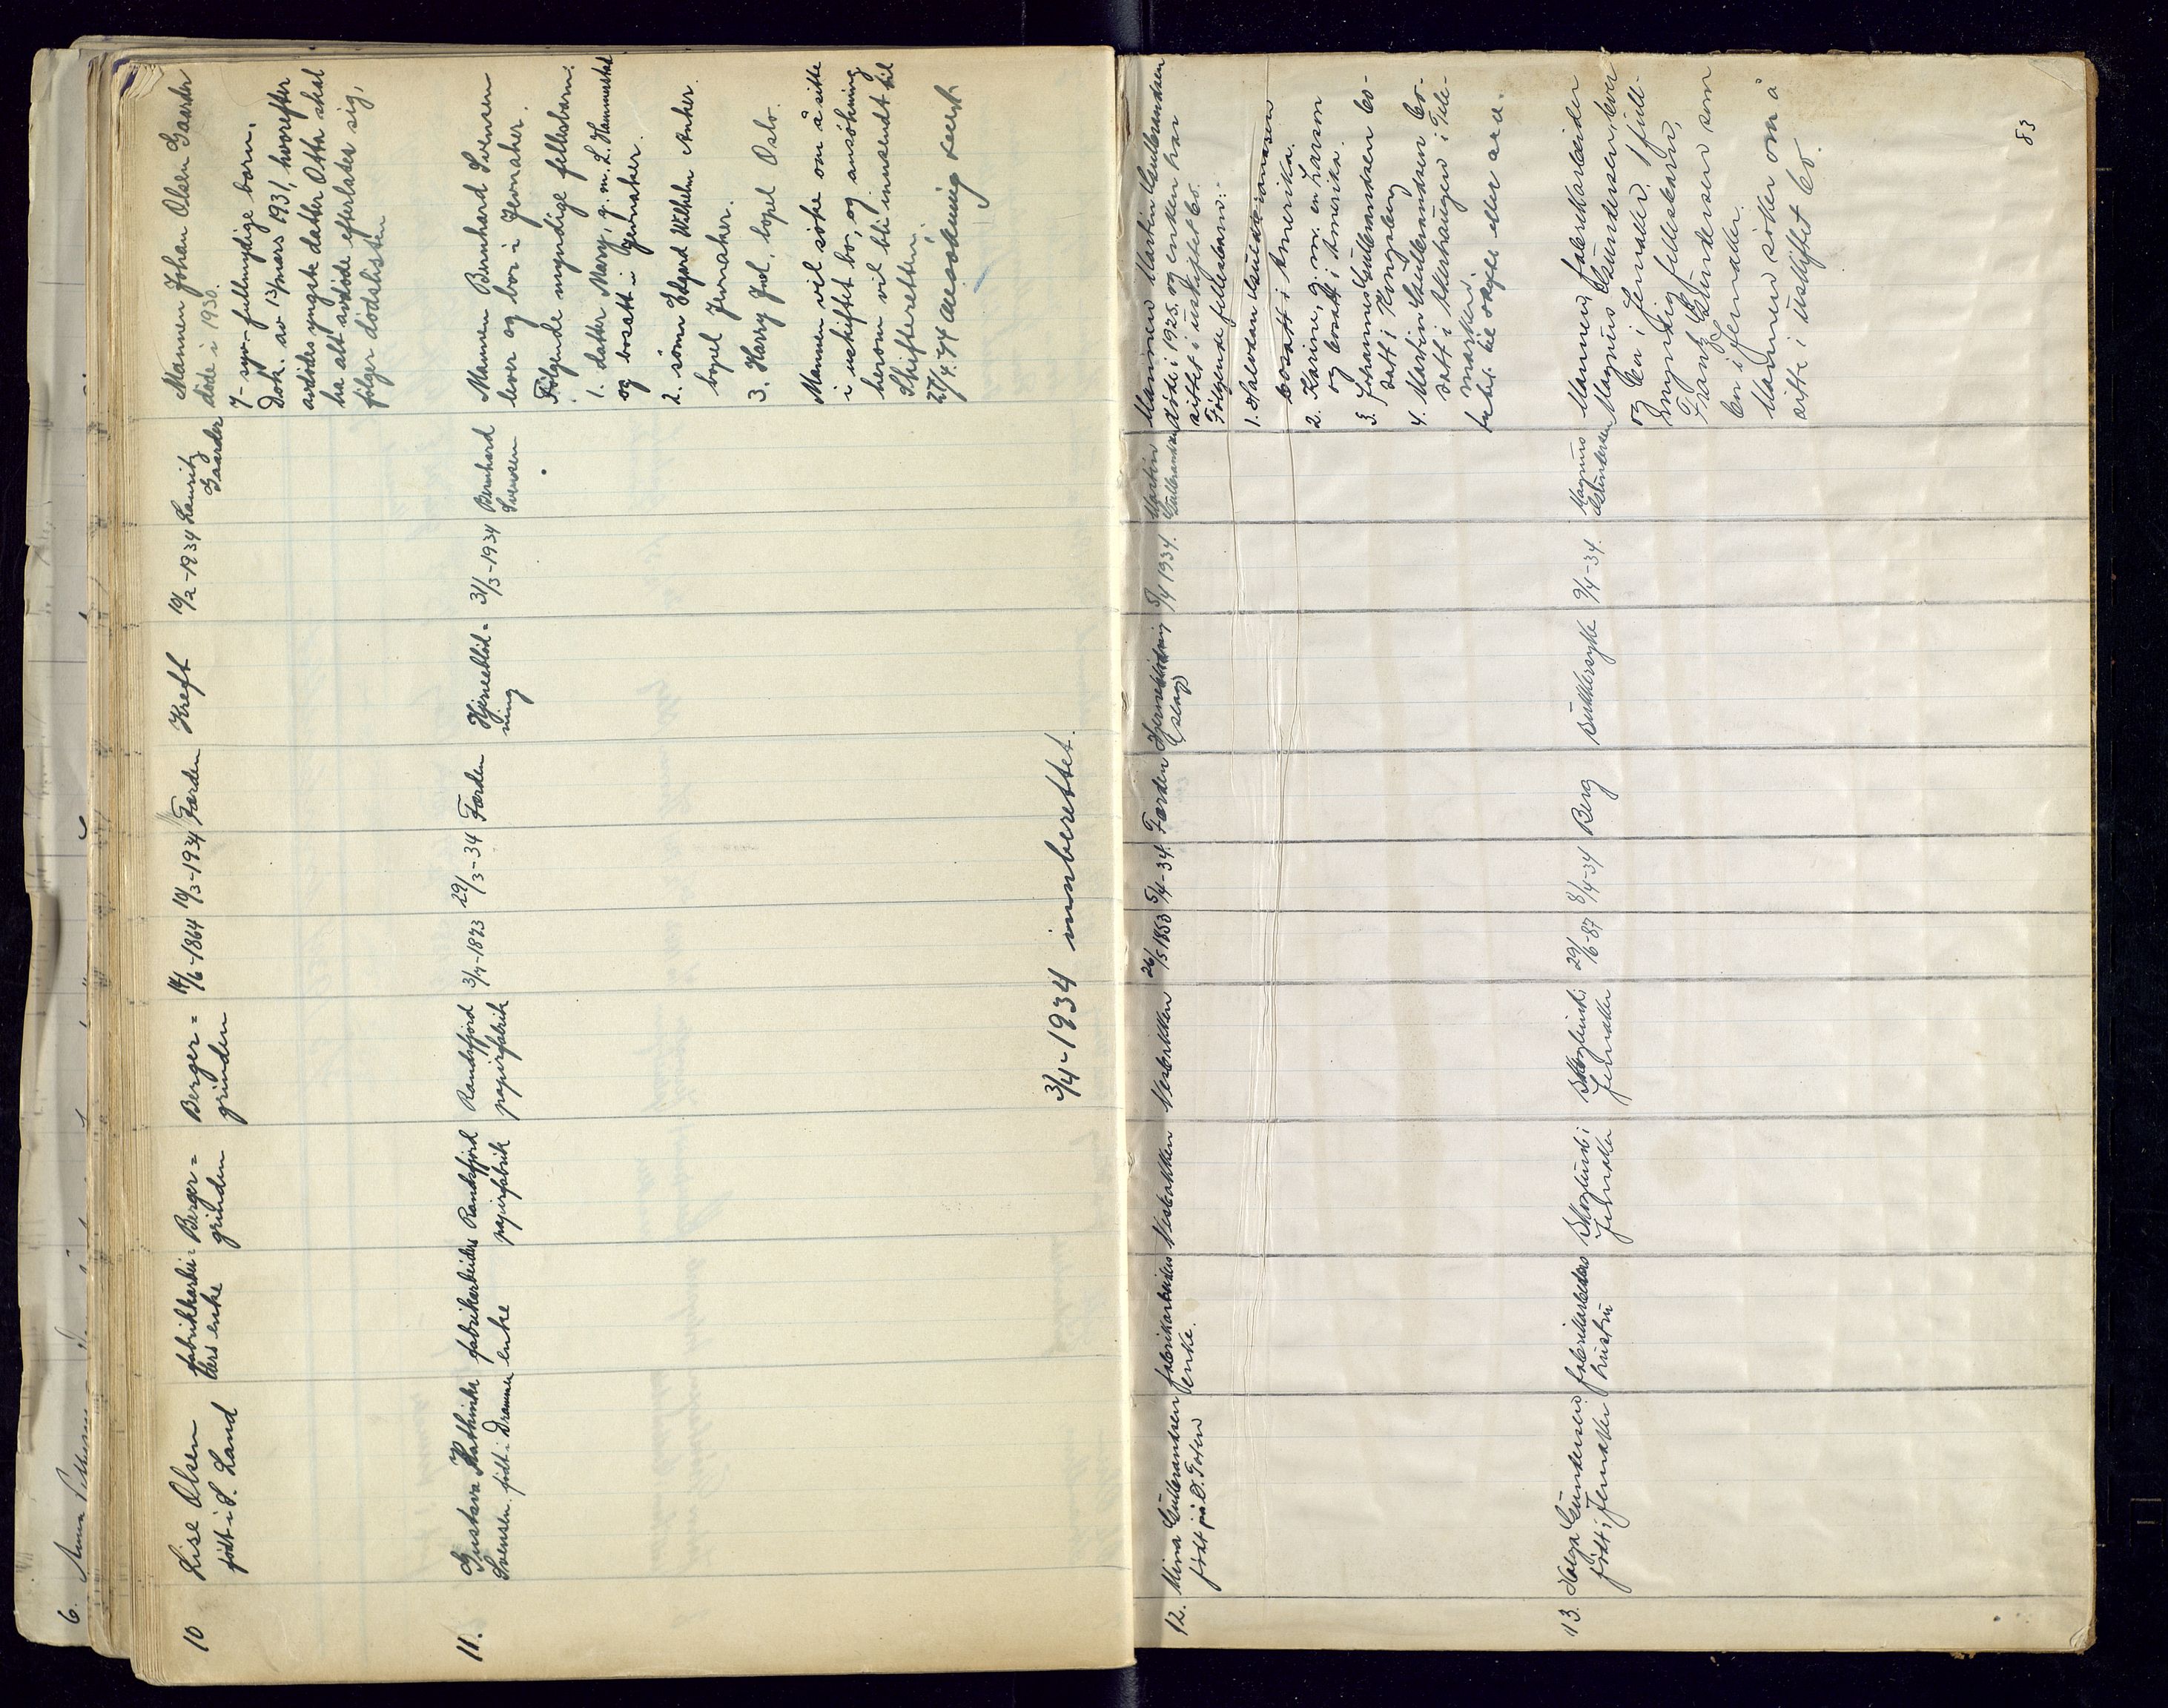 6. Anna
10
Lise Olsen
født i S. Land
fabrikkarbei=
ders enke
Berger=
grinden
Berger=
grinden
14/6-1864
10/3-1934
Førden
Kreft
19/2-1934
Lauritz
Gaarder
Mannen Johan Olsen Gaarder
døde i 1930.
7- syv- fullmyndige barn.
Dok. av 13/mars 1931, hvorefter
avdødes yngste datter Osta skal
ha alt avdøde efterlater sig,
følger dødslisten
11.
Gustava Kathinka
Svensen. født i Drammen
fabrikarbeiders
enke
Randsfjord
papirfabrik
Randsfjord
papirfabrik
3/7-1873
29/3-34
Førden
Hjerneblød=
ning
31/3-1934
Bernhard
Svensen
Mannen Bernhard Svensen
lever og bor i Jevnaker.
Følgende myndige fellesbarn:
1. datter Mary, g. m. L. Hammerstad
og bosatt i Jevnaker.
2. sønn Edgard Wilhelm Anker
bopel Jevnaker.
3. Harry Juel, bopel Oslo.
Mannen vil søke om å sitte
i uskiftet bo, og ansøkning
herom vil bli innsendt til
Skifteretten.
3/4-1934 innberettet.
12.
Mina Gulbrandsen
født på Ø. Toten
fabrikarbeiders
enke.
Vestbakken
Vestbakken
26/5 1853
5/4-34.
Førden
Hjerneblødning
(slag)
5/4 1934.
Martin
Gulbrandsen
Mannen Martin Gulbrandsen
døde i 1925. og enken har
sittet i uskiftet bo.
Følgende fellesbarn:-
1. Halvdan Gulbrandsen
bosatt i Amerika.
2. Karine, g. m. en Larson
og bosatt i Amerika.
3. Johannes Gulbrandsen bo-
satt i Kongsberg
4. Martin Gulbrandsen bo-
satt i Åkershaugen i Tele-
marken.
Intet til skifte eller arv.
13.
Helga Gundersen
født i Jevnaker
fabrikarbeiders
hustru
Skoglund i
Jevnaker
Skoglund i
Jevnaker
29/6-87
8/4-34
Berg
Sukkersyke
9/4-34.
Magnus
Gundersen
Mannen, fabrikarbeider
Magnus Gundersen, lever
og bor i Jevnaker. 1 full-
myndig fellesbarn,
Frantz Gundersen som
bor i Jevnaker.
Mannen søker om å
sitte i uskiftet bo.
83